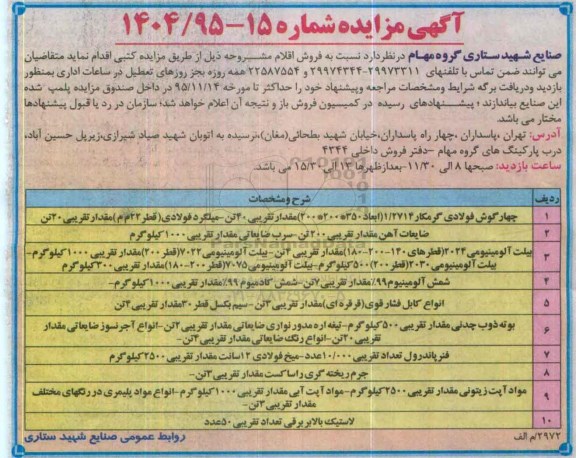 آگهی مزایده شماره ۱۵-۱۴۰۴/۹۵
صنایع شهید ستاری گروه مهام در نظر دارد نسبت به فروش اقلام مشروحه ذیل از طریق مزایده کتبی اقدام نماید متقاضیان
می توانند ضمن تماس با تلفنهای ۲۹۹۷۳۳۱۱-۲۹۹۷۴۳۴۴ و ۲۲۵۸۷۵۵۴ همه روزه بجز روزهای تعطیل در ساعات اداری بمنظور
بازدید ودریافت برگه شرایط ومشخصات مراجعه وپیشنهاد خود را حداکثر تا مورخه ۹۵/۱۱/۱۴ در داخل صندوق مزایده پلمب شده
این صنایع بیاندازند؛ پیشنهادهای رسیده در کمیسیون فروش باز و نتیجه آن اعلام خواهد شد؛ سازمان در رد یا قبول پیشنهادها
مختار می باشد.
آدرس: تهران ،پاسداران ،چهار راه پاسداران،خیابان شهید بطحائی(مغان)،نرسیده به اتوبان شهید صیاد شیرازی،زیرپل حسین آباد،
درب پارکینگ های گروه مهام -دفتر فروش داخلی ۴۳۴۴
ساعت بازدید: صبحها ۸ الی ۱۱/۳۰-بعدازظهرها ۱۳ الی ۱۵/۳۰ می باشد.
ردیف شرح ومشخصات
۱ چهارگوش فولادی گرمکار ۱/۲۷۱۴(ابعاد ۳۵۰*۲۰۰*۲۰۰)مقدار تقریبی ۴۰تن-میلگرد فولادی( قطر ۲۲م م)مقدار تقریبی ۲۰تن
۲ ضایعات آهن مقدار تقریبی ۲۰۰تن-سرب ضایعاتی مقدار تقریبی ۱۰۰۰کیلوگرم
۳ بیلت آلومینیومی ۲۰۲۴(قطرهای ۱۴۰-۲۰۰-۱۸۰)مقدار تقریبی ۴تن-بیلت آلومینیومی ۷۰۲۲(قطر ۲۰۰)مقدار تقریبی ۱۰۰۰کیلوگرم-
بیلت آلومینیومی ۲۰۳۰(قطر ۲۰۰)۵۰۰کیلوگرم-بیلت آلومینیومی ۷۰۷۵(قطر ۲۰۰-۱۸۰)مقدار تقریبی ۳۰۰کیلوگرم
۴ شمش آلومینیوم ۹۹٪مقدار تقریبی ۷تن-شمش کادمیوم ۹۹٪مقدار تقریبی ۱۰۰۰کیلوگرم
۵ انواع کابل فشار قوی(قرقره ای)مقدار تقریبی ۳تن- سیم بکسل قطر ۳۰مقدار تقریبی ۴تن
۶ بوته ذوب چدنی مقدار تقریبی ۵۰۰کیلوگرم-تیغه اره مدور نواری ضایعاتی مقدار تقریبی ۲تن-انواع آجر نسوز ضایعاتی مقدار
تقریبی ۲۰تن-انواع رنگ ضایعاتی مقدار تقریبی ۳تن-
۷ فنر پاندرول تعداد تقریبی ۱۰/۰۰۰عدد-میخ فولادی ۱۲سانت مقدار تقریبی ۲۵۰۰کیلوگرم
۸ جرم ریخته گری راساکست مقدار تقریبی ۳تن-
۹ مواد آپت زیتونی مقدار تقریبی ۲۵۰۰کیلوگرم-مواد آپت آبی مقدار تقریبی ۱۰۰۰کیلوگرم-انواع مواد پلیمری در رنگهای مختلف
مقدار تقریبی ۳تن-
۱۰ لاستیک بالابر برقی تعداد تقریبی ۵۰عدد
۲۹۷۲/م الف روابط عمومی صنایع شهید ستاری